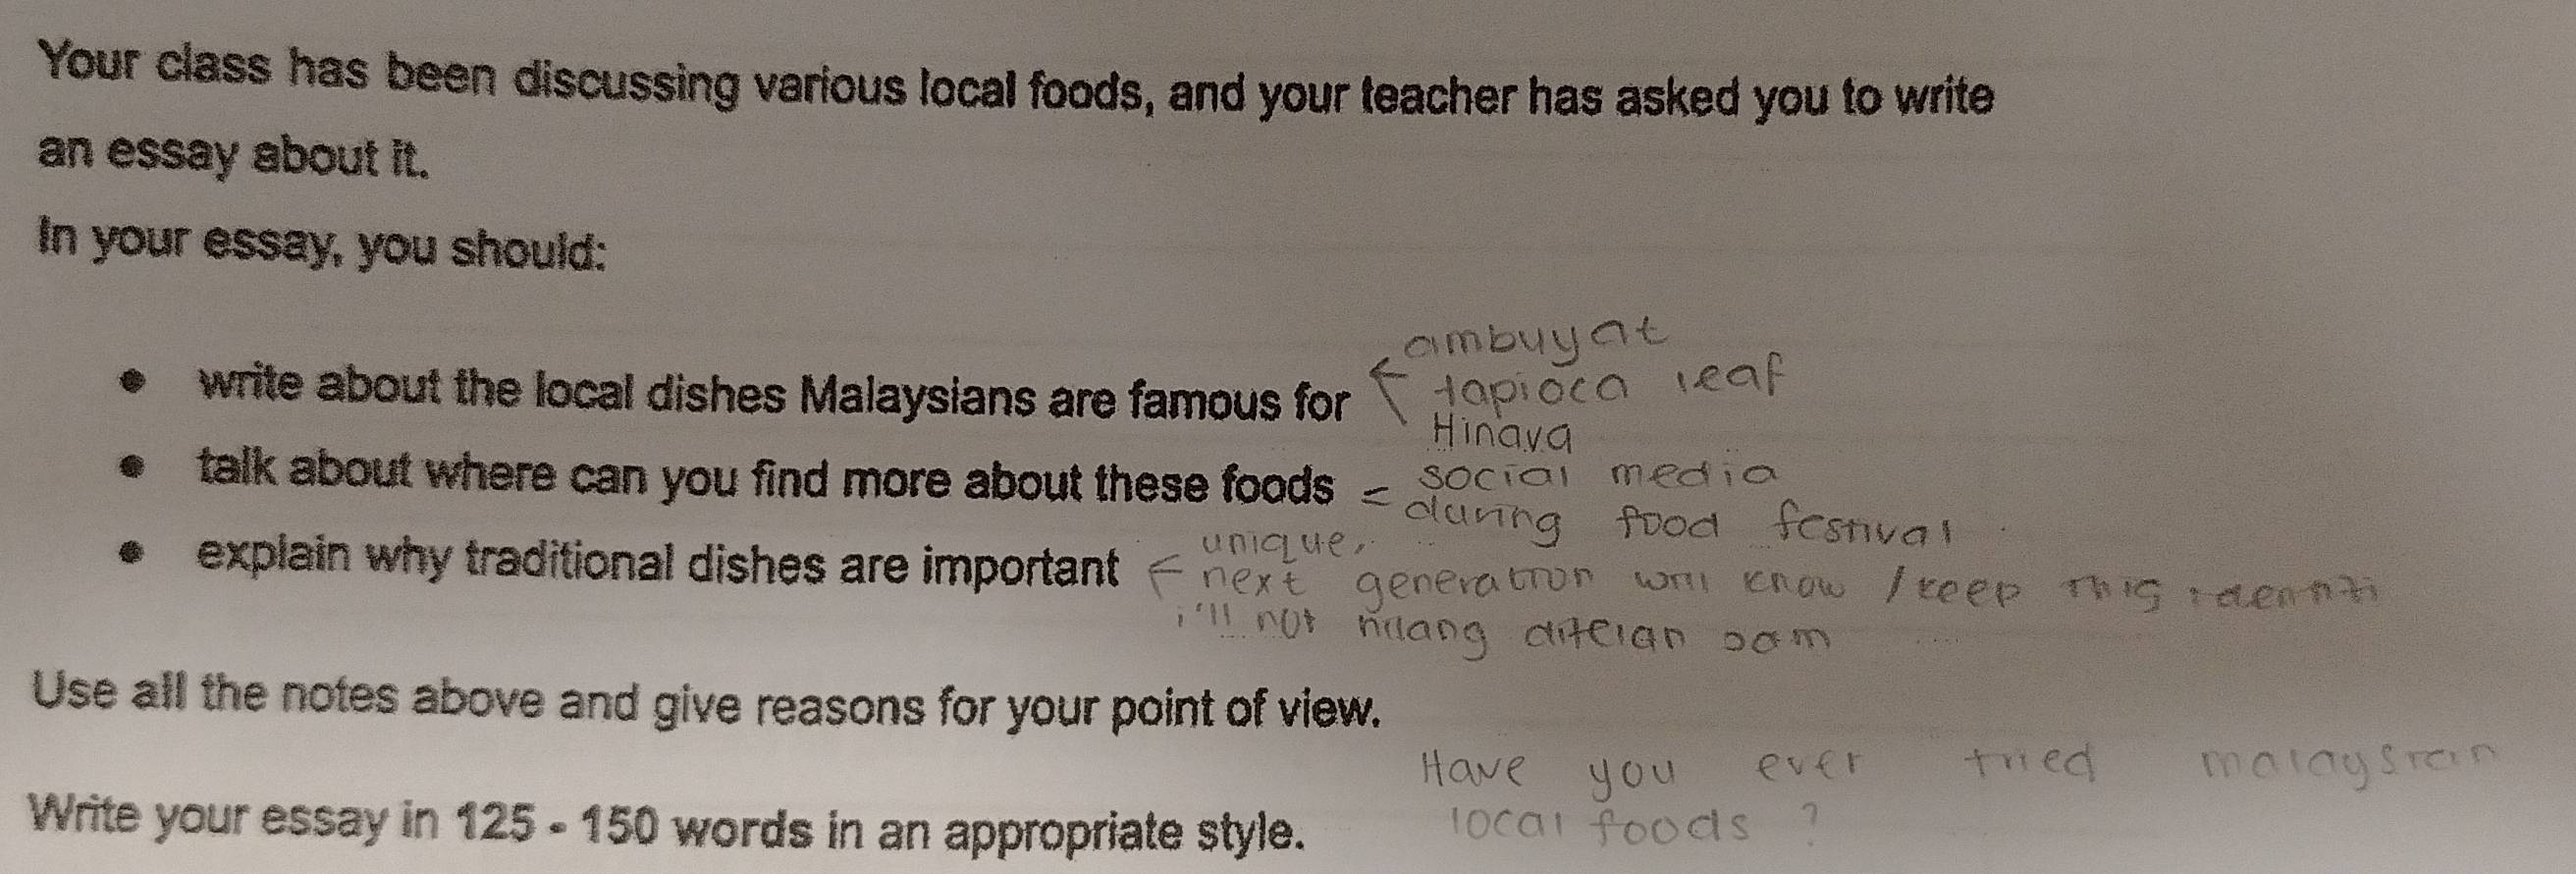 Your class has been discussing various local foods, and your teacher has asked you to write
an essay about it.
In your essay, you should:
ambuyat
• write about the local dishes Malaysians are famous for
tapioca leaf
Hinava
• talk about where can you find more about these foods
social media
during food festival
• explain why traditional dishes are important
unique,
next generation will know / keep this
i'll not hilang ditelan
Use all the notes above and give reasons for your point of view.
Have you ever tried malaysian
local foods ?
Write your essay in 125 - 150 words in an appropriate style.